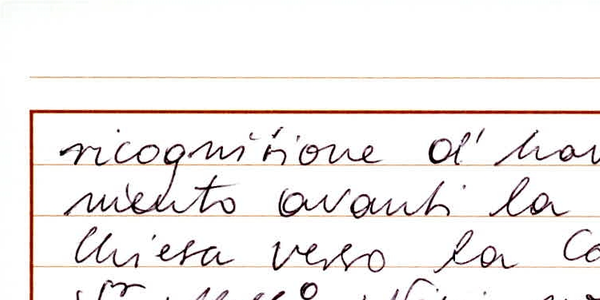 ricognitione d'hav
miento avanti la
Chiesa verso la Co